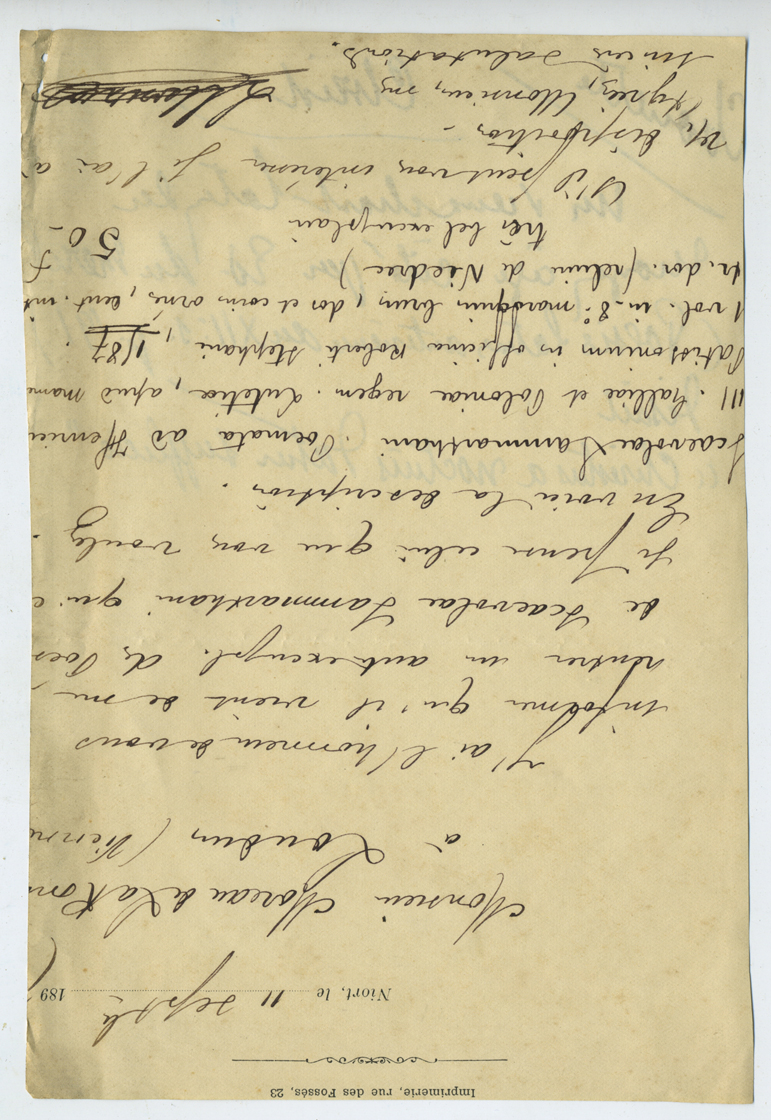 Imprimerie, rue des Fossés, 23
Niort, le 11 septb 189
Monsieur Moreau de La Ron
à Loudun (Vienn
J'ai l'honneur de vous
informer qu'il vient de me
rentrer un aut. exempl. des Poes
de Scaevolae Sammarthani qui e
je pense celui que vous voulez.
En voici la description.
Scaevolae Sammarthani Poemata ad Henricu
III. Galliae et Poloniae regem. Lutetiae, apud mame
Patissonium in officina Roberti Stephani, 1587.
1 vol. in-8° maroquin brun, dos et coins ornés, dent. int
tr. dor. (reliure de Niedrée) f
très bel exemplaire 50-
S'il peut vous intéresser je l'ai à
v/ disposition.
Agréez, Monsieur, mes
sincères salutations.